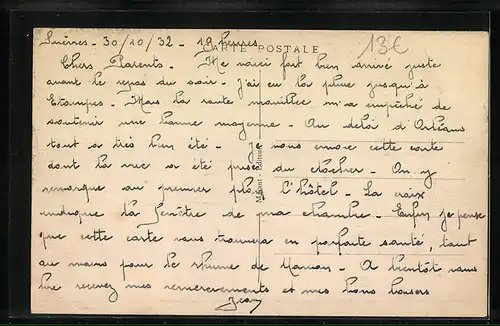 Suèvres - 30/10/32 - 19 heures
CARTE POSTALE
13€
Chers Parents - Me voici fort bien arrivé juste
avant le repas du soir - J'ai eu la pluie jusqu'à
Etampes - Mais la route mouillée m'a empêché de
soutenir une bonne moyenne - Au delà d'Orléans
tout a très bien été - Je vous envoie cette carte
dont la vue a été prise du clocher - On y
remarque au premier plan l'hôtel - La croix
indique la fenêtre de ma chambre - Enfin je pense
que cette carte vous trouvera en parfaite santé, tant
au moins pour le rhume de Maman - A bientôt vous
lire recevez mes remerciements et mes bons baisers
Jean